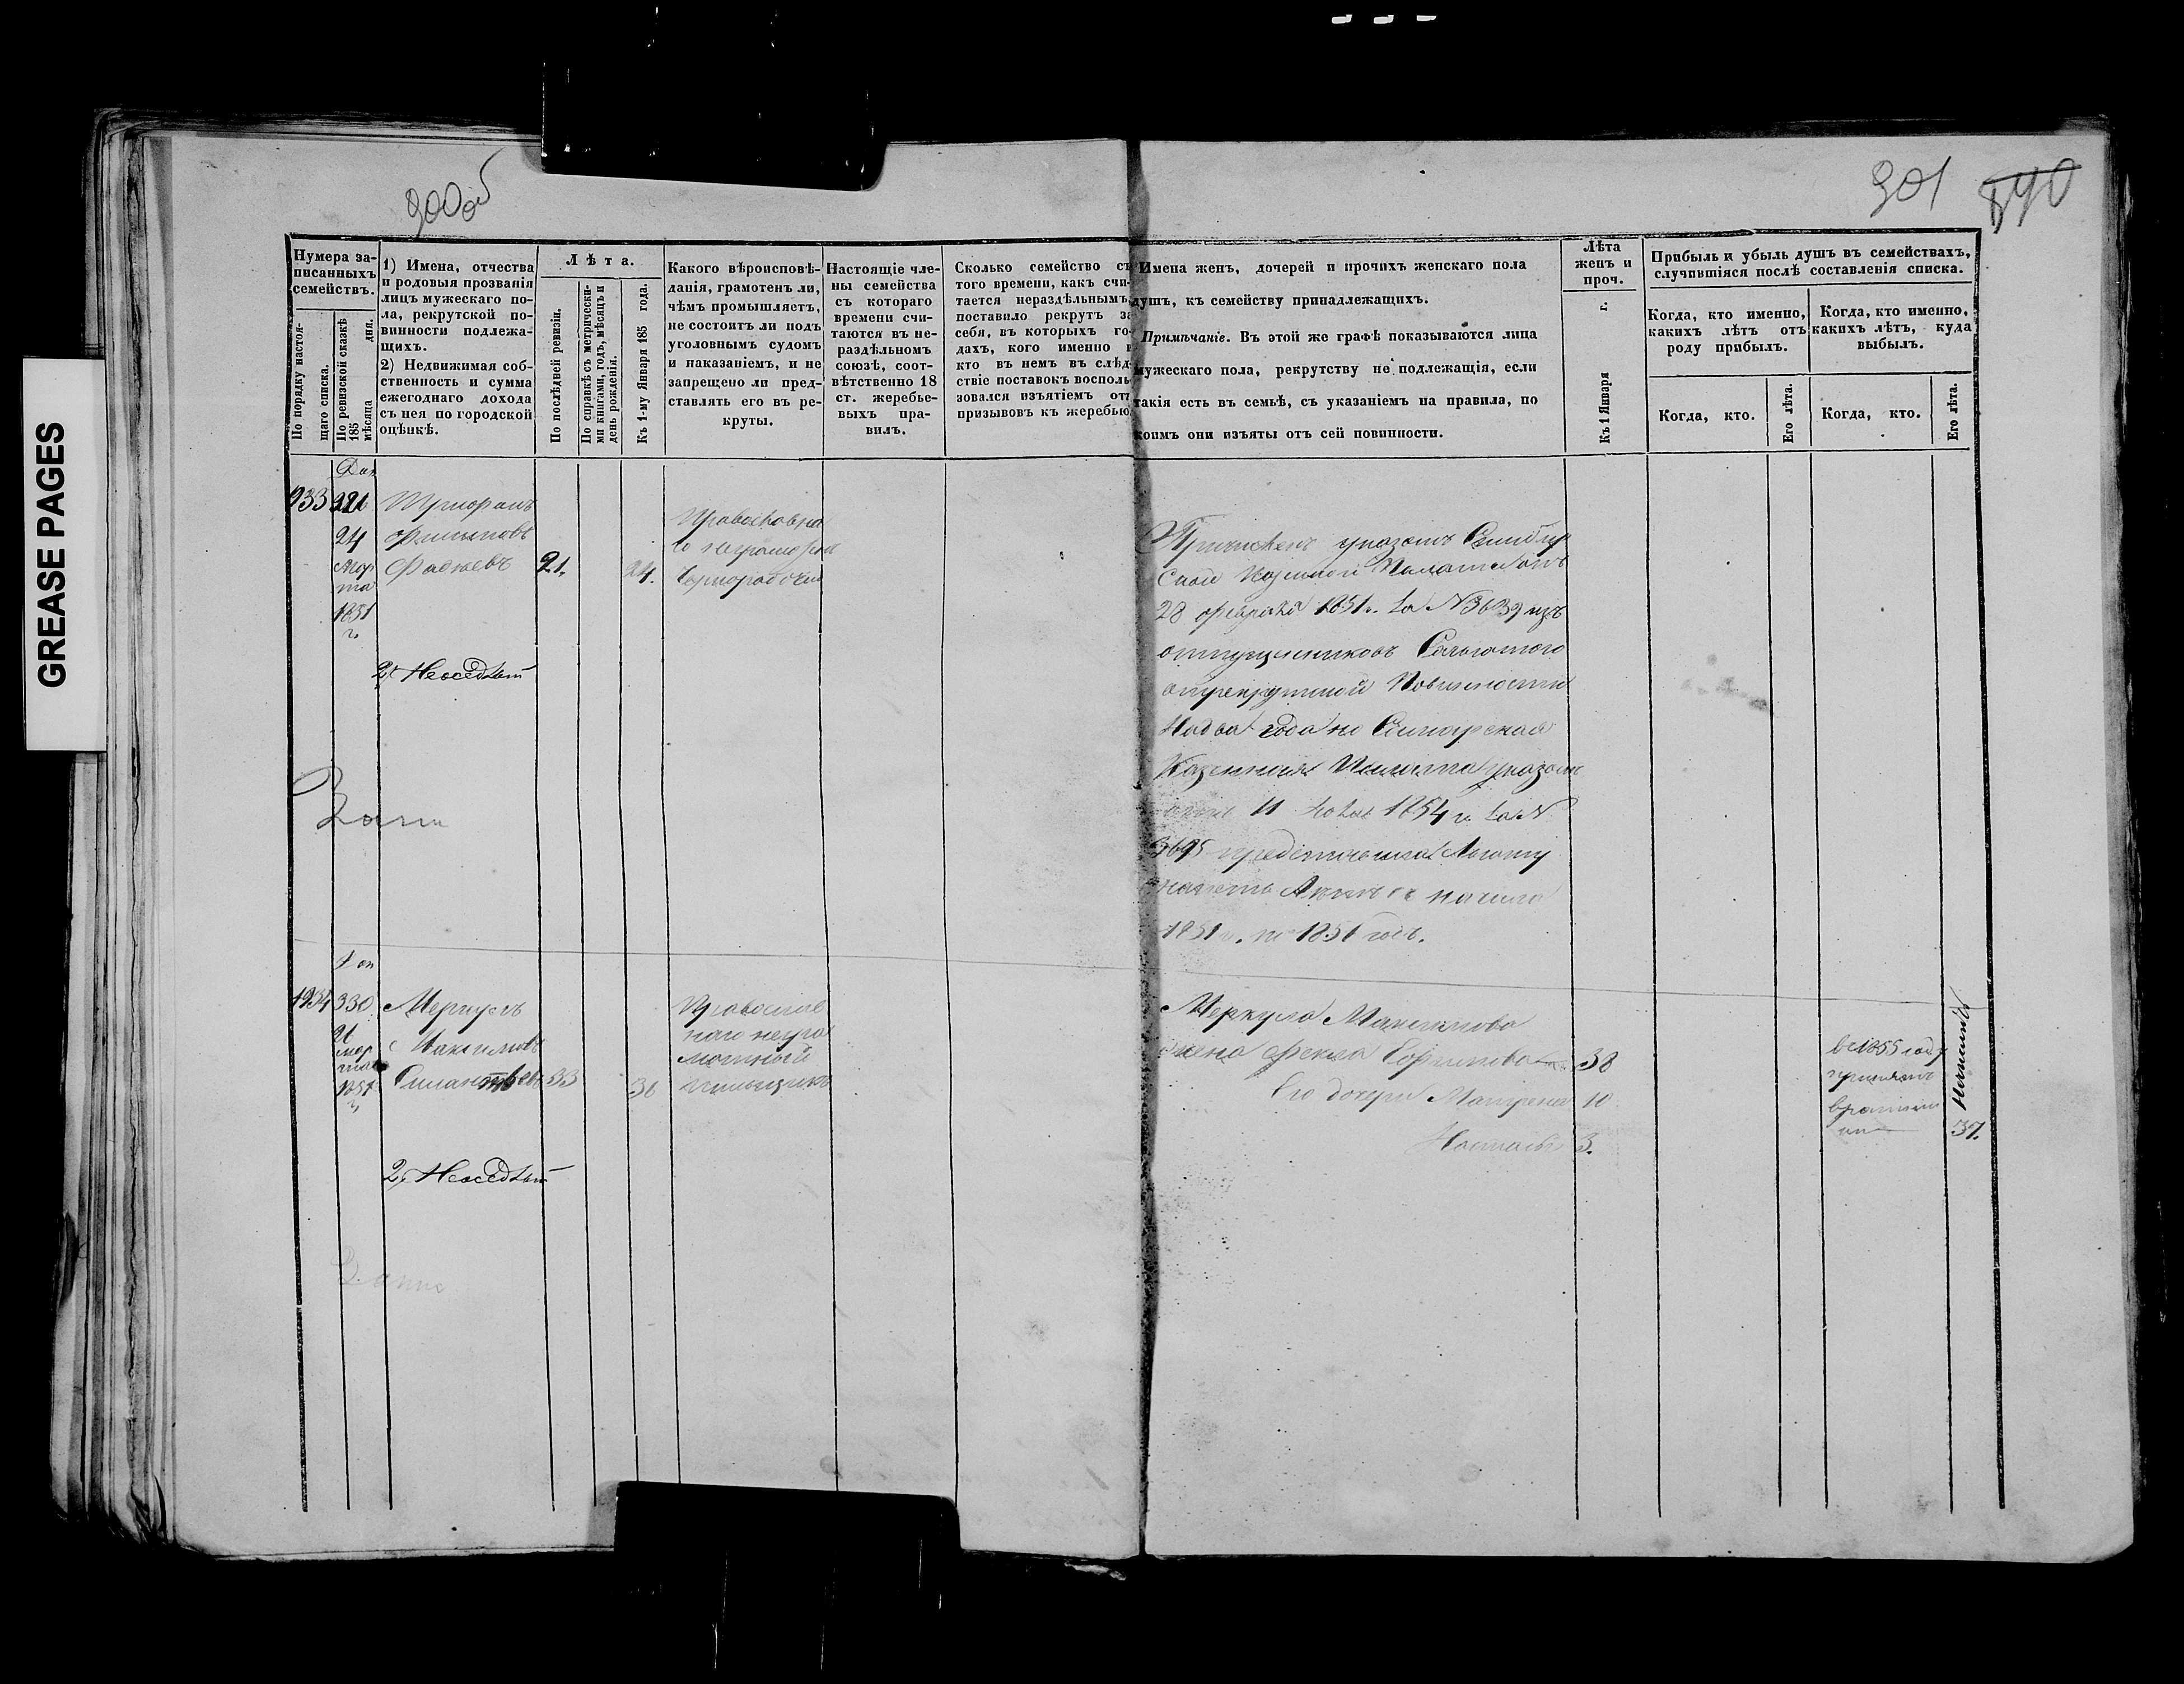 GREASE PAGES
300об
301
Нумера за-
писанныхъ
семействъ.
По порядку настоя-
щаго списка.
По ревизской сказкѣ
185 мѣсяца дня.
1) Имена, отчества
и родовыя прозванія
лицъ мужескаго по-
ла, рекрутской по-
винности подлежа-
щихъ.
2) Недвижимая соб-
ственность и сумма
ежегоднаго дохода
съ нея по городской
оцѣнкѣ.
Лѣта.
По послѣдней ревизіи.
По справкѣ съ метрически-
ми книгами, годъ, мѣсяцъ и
день рожденія.
Къ 1-му Января 185 года.
Какого вѣроисповѣ-
данія, грамотенъ ли,
чѣмъ промышляетъ,
не состоитъ ли подъ
уголовнымъ судомъ
и наказаніемъ, и не
запрещено ли пред-
ставлять его въ ре-
круты.
Настоящіе чле-
ны семейства
съ котораго
времени счи-
таются въ не-
раздѣльномъ
союзѣ, соот-
вѣтственно 18
ст. жеребье-
выхъ пра-
вилъ.
Сколько семейство съ
того времени, какъ счи-
тается нераздѣльнымъ,
поставило рекрутъ за
себя, въ которыхъ го-
дахъ, кого именно и
кто въ немъ въ слѣд-
ствіе поставокъ восполь-
зовался изъятіемъ отъ
призывовъ къ жеребью.
Имена женъ, дочерей и прочихъ женскаго пола
душъ, къ семейству принадлежащихъ.
Примѣчаніе. Въ этой же графѣ показываются лица
мужескаго пола, рекрутству не подлежащія, если
такія есть въ семьѣ, съ указаніемъ на правила, по
коимъ они изъяты отъ сей повинности.
Лѣта
женъ и
проч.
Къ 1 Января г.
Прибыль и убыль душъ въ семействахъ,
случившіяся послѣ составленія списка.
Когда, кто именно,
какихъ лѣтъ отъ
роду прибылъ.
Когда, кто именно,
какихъ лѣтъ, куда
выбылъ.
Когда, кто.
Его лѣта.
Когда, кто.
Его лѣта.
Доп
933
24
Филиповъ
Марта
Фадѣевъ 21. 24.
1851
г.
Православна
го неграмотный
чернорабочий
2, Неоседлый
Причисленъ указомъ Симбир
ской Казенной Палаты отъ
28 февраля 1851 г. за № 3639 изъ
отпущенниковъ
рекрутской Повинности
На два года но Симбирская
Казенная Палата указомъ
11 1854 г. за №
3695 предоставила Льготу
начала
1851 г. по 1856 годъ.
Доп
1934 330 Меркулъ
Максимовъ
Силантьевъ 33 36
Православ
ный негра
мотный
2, Неоседлый
Меркула Максимова
жена Фекла Ефимова 38
Его дочери Матрена 10
Настасья 3.
въ 1855 году
принятъ
37.